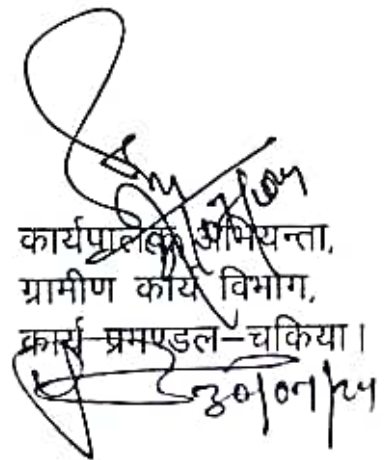 कार्यपालक अभियन्ता,
ग्रामीण कार्य विभाग,
कार्य प्रमण्डल-चकिया।
30/07/24